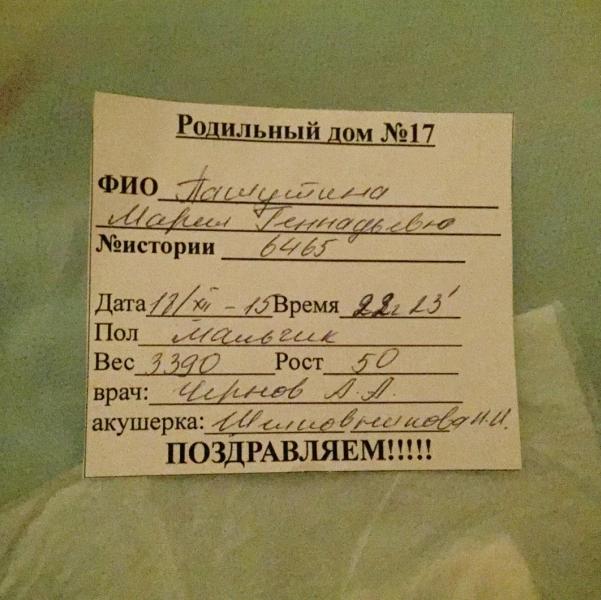 Родильный дом №17
ФИО Пашутина
Мария Геннадьевн
№истории 6465
Дата 17/XII - 15 Время 22ч 23'
Пол мальчик
Вес 3390 Рост 50
врач: Чернов А.А.
акушерка: Шелковникова Н.И.
ПОЗДРАВЛЯЕМ!!!!!